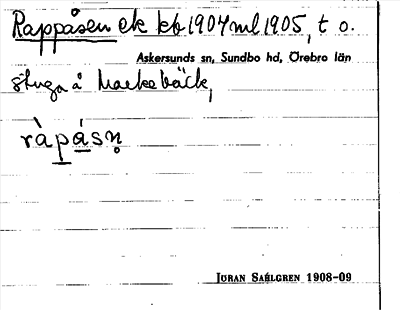 Rappåsen ek kb 1907 ml 1905, t o.
Askersunds sn, Sundbo hd, Örebro län
stuga å Markebäck,
ràpásn̥
JÖRAN SAHLGREN 1908-09